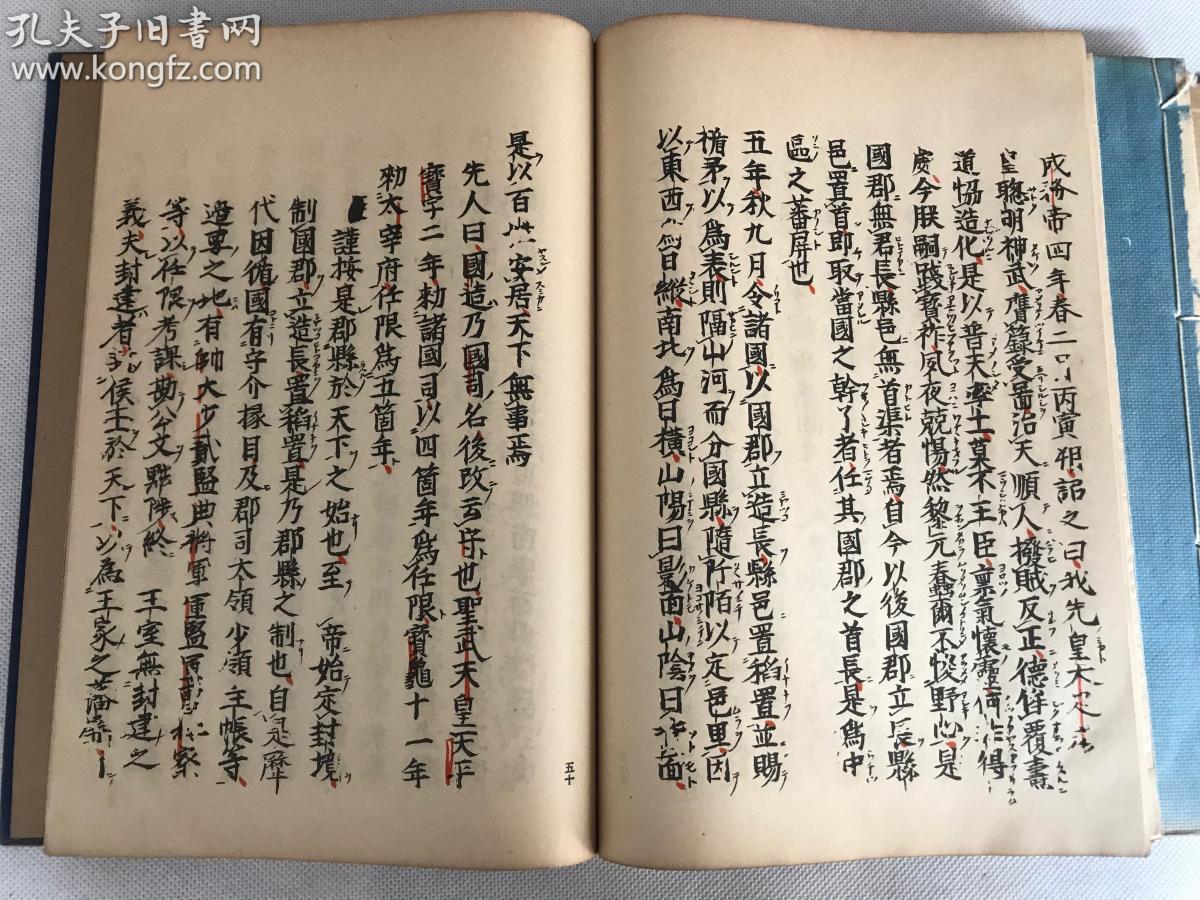 孔夫子旧书网
www.kongfz.com
成務帝四年春二月丙寅朔詔之曰我先皇大足
皇聰明神武膺籙受啚洽天順人撥賊反正德侔覆燾
道恊造化是以普天率土莫不王臣稟氣懷靈何非得
處今朕嗣踐寳祚夙夜兢惕然黎元蠢爾不悛野心是
國郡無君長縣邑無首渠者焉自今以後國郡立長縣
邑置首即取當國之幹了者任其國郡之首長是爲中
區之蕃屏也
五年秋九月令諸國以國郡立造長縣邑置稻置並賜
楯矛以爲表則隔山河而分國縣隨阡陌以定邑里因
以東西爲日縱南北爲日橫山陽曰影面山陰曰背面
是以百姓安居天下無事焉
先人曰國造乃國司名後改云守也聖武天皇天平
寳字二年勅諸國司以四箇年爲任限寳龜十一年
勅太宰府任限爲五箇年
謹按是郡縣於天下之始也至帝始定封境
制國郡立造長置稻置是乃郡縣之制也自是歷
代因循國有守介掾目及郡司大領少領主帳等
邊要之地有帥大少貳監典將軍軍監
等以任限考課勘公文黜陟終王室無封建之
義夫封建者
侯士於天下以為王家之藩
五十